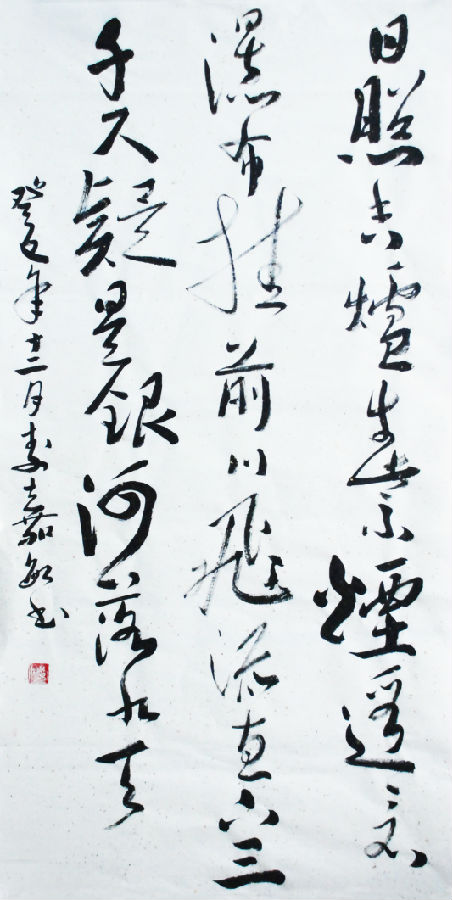 日照香爐生紫煙遙看
瀑布挂前川飛流直下三
千尺疑是銀河落九天
癸巳年十二月李嘉敏书